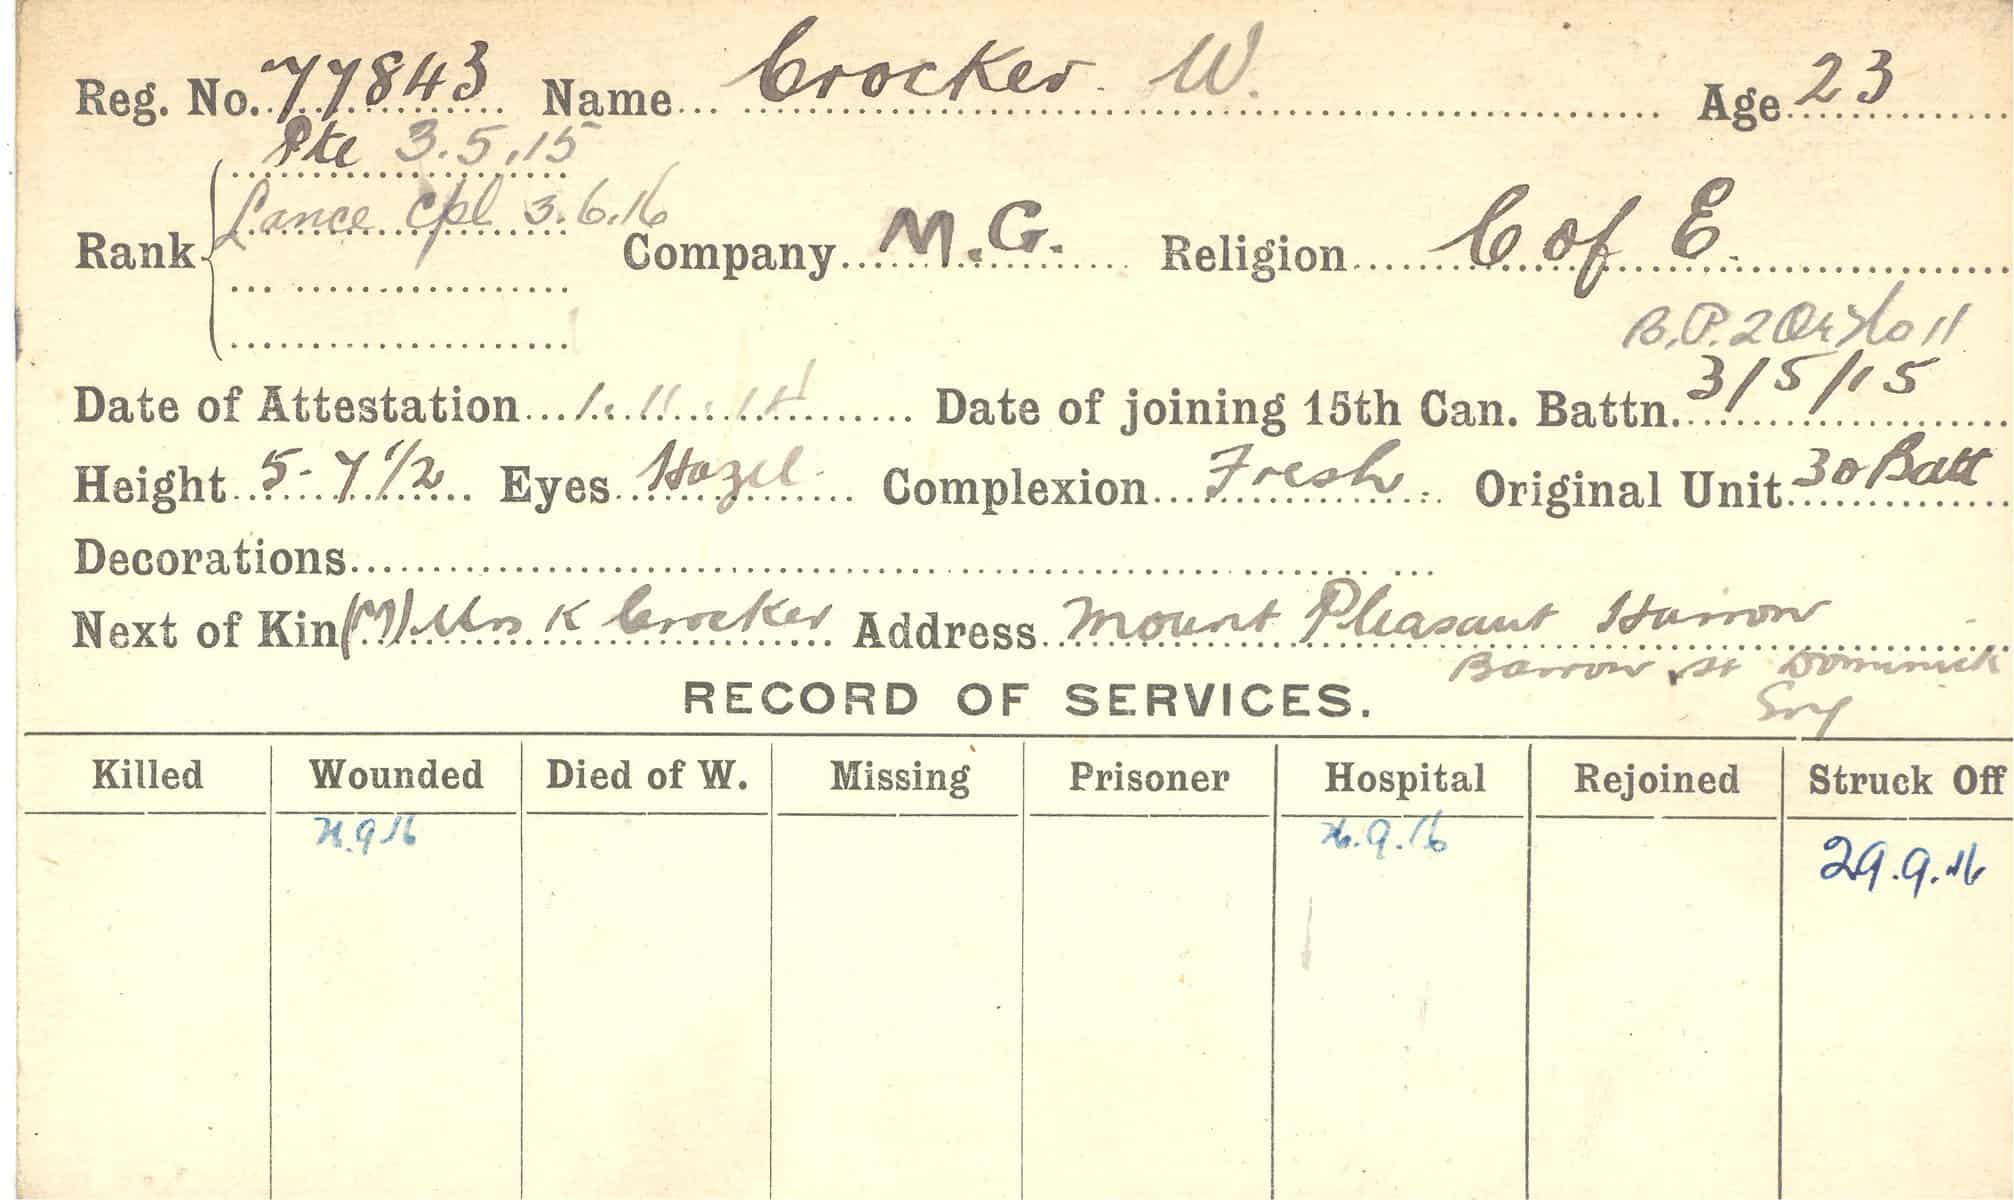 Reg. No. 77843 Name Crocker W. Age 23
Pte 3.5.15
Lance Cpl 3.6.16
Rank Company M.G. Religion C of E.
B.P. 2 Or No 11
Date of Attestation 1.11.14 Date of joining 15th Can. Battn. 3/5/15
Height 5-7 1/2 Eyes Hazel Complexion Fresh Original Unit 30 Batt
Decorations
Next of Kin (M) Mrs K Crocker Address Mount Pleasant Harrow
Barrow St Dominick
Eng
RECORD OF SERVICES.
Killed Wounded Died of W. Missing Prisoner Hospital Rejoined Struck Off
26.9.16 26.9.16 29.9.16